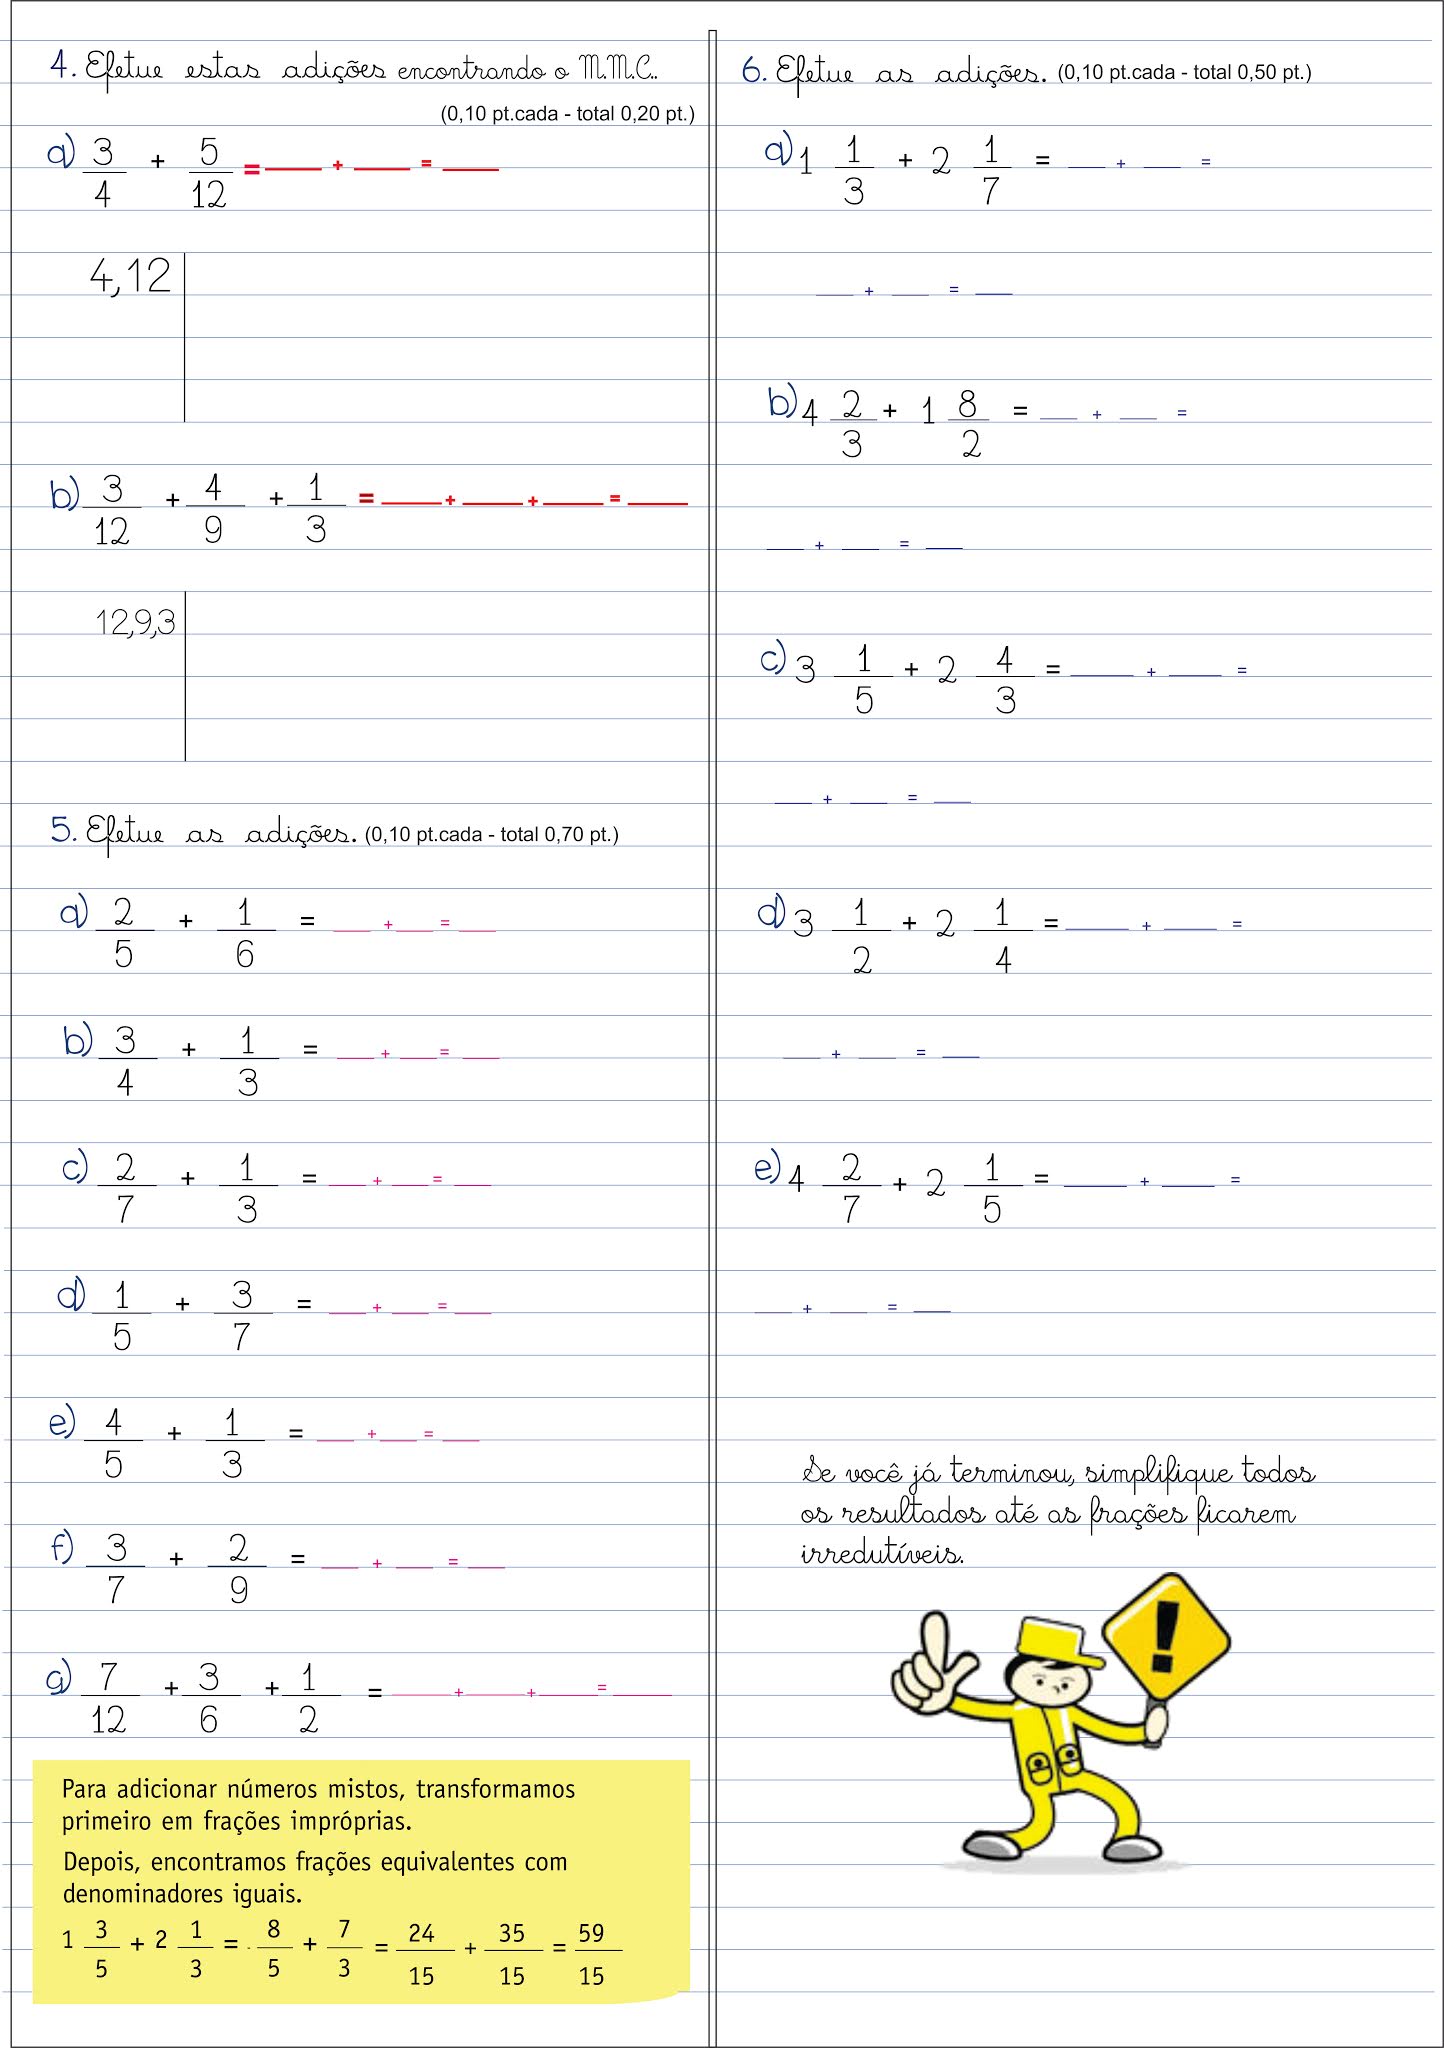 4. Efetue estas adições encontrando o M.M.C..
(0,10 pt.cada - total 0,20 pt.)
a) 3/4 + 5/12 = ___ + ___ = ___
4,12
b) 3/12 + 4/9 + 1/3 = ___ + ___ + ___ = ___
12,9,3
5. Efetue as adições. (0,10 pt.cada - total 0,70 pt.)
a) 2/5 + 1/6 = ___ + ___ = ___
b) 3/4 + 1/3 = ___ + ___ = ___
c) 2/7 + 1/3 = ___ + ___ = ___
d) 1/5 + 3/7 = ___ + ___ = ___
e) 4/5 + 1/3 = ___ + ___ = ___
f) 3/7 + 2/9 = ___ + ___ = ___
g) 7/12 + 3/6 + 1/2 = ___ + ___ + ___ = ___
Para adicionar números mistos, transformamos
primeiro em frações impróprias.
Depois, encontramos frações equivalentes com
denominadores iguais.
1 3/5 + 2 1/3 = 8/5 + 7/3 = 24/15 + 35/15 = 59/15
6. Efetue as adições. (0,10 pt.cada - total 0,50 pt.)
a) 1 1/3 + 2 1/7 = ___ + ___ =
___ + ___ = ___
b) 4 2/3 + 1 8/2 = ___ + ___ =
___ + ___ = ___
c) 3 1/5 + 2 4/3 = ___ + ___ =
___ + ___ = ___
d) 3 1/2 + 2 1/4 = ___ + ___ =
___ + ___ = ___
e) 4 2/7 + 2 1/5 = ___ + ___ =
___ + ___ = ___
Se você já terminou, simplifique todos
os resultados até as frações ficarem
irredutíveis.
!